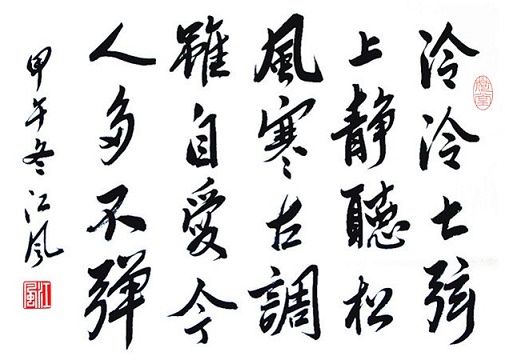 泠泠七弦
上静聽松
風寒古調
雖自愛今
人多不彈
甲午冬江风
江風